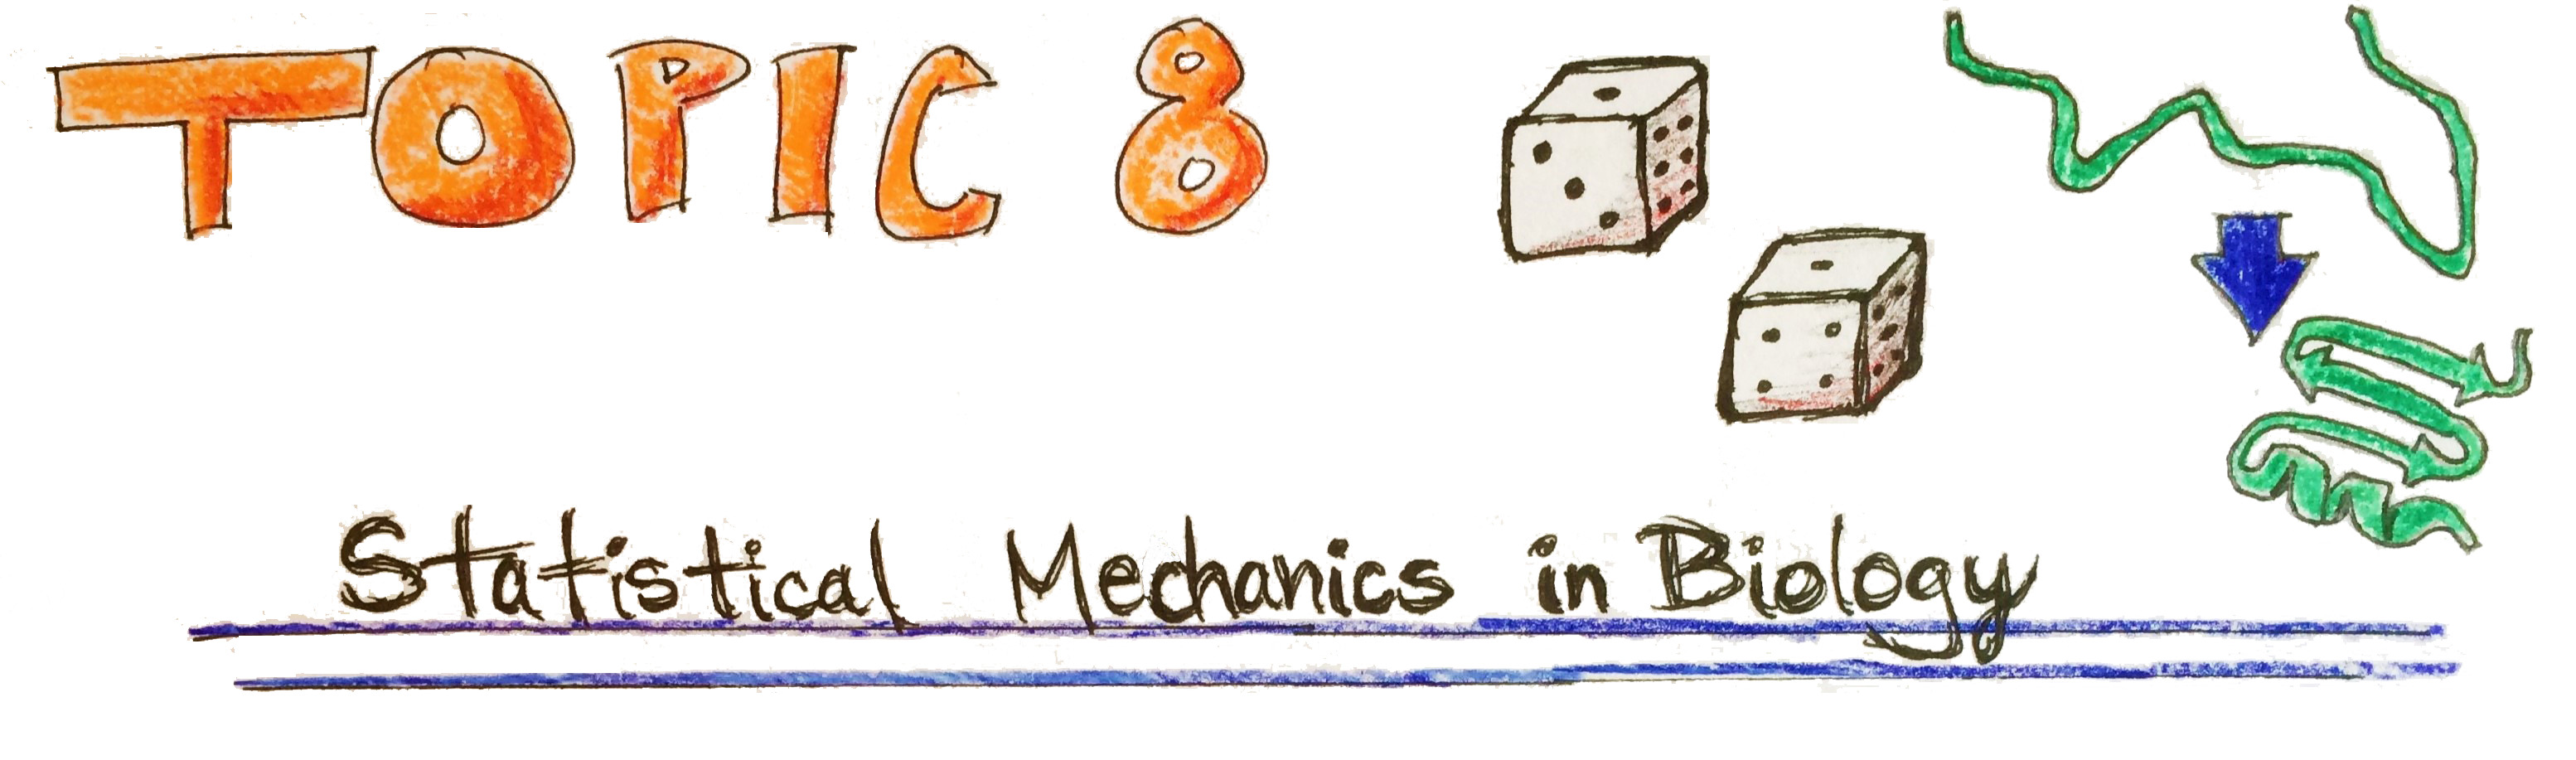 TOPIC 8
Statistical Mechanics in Biology